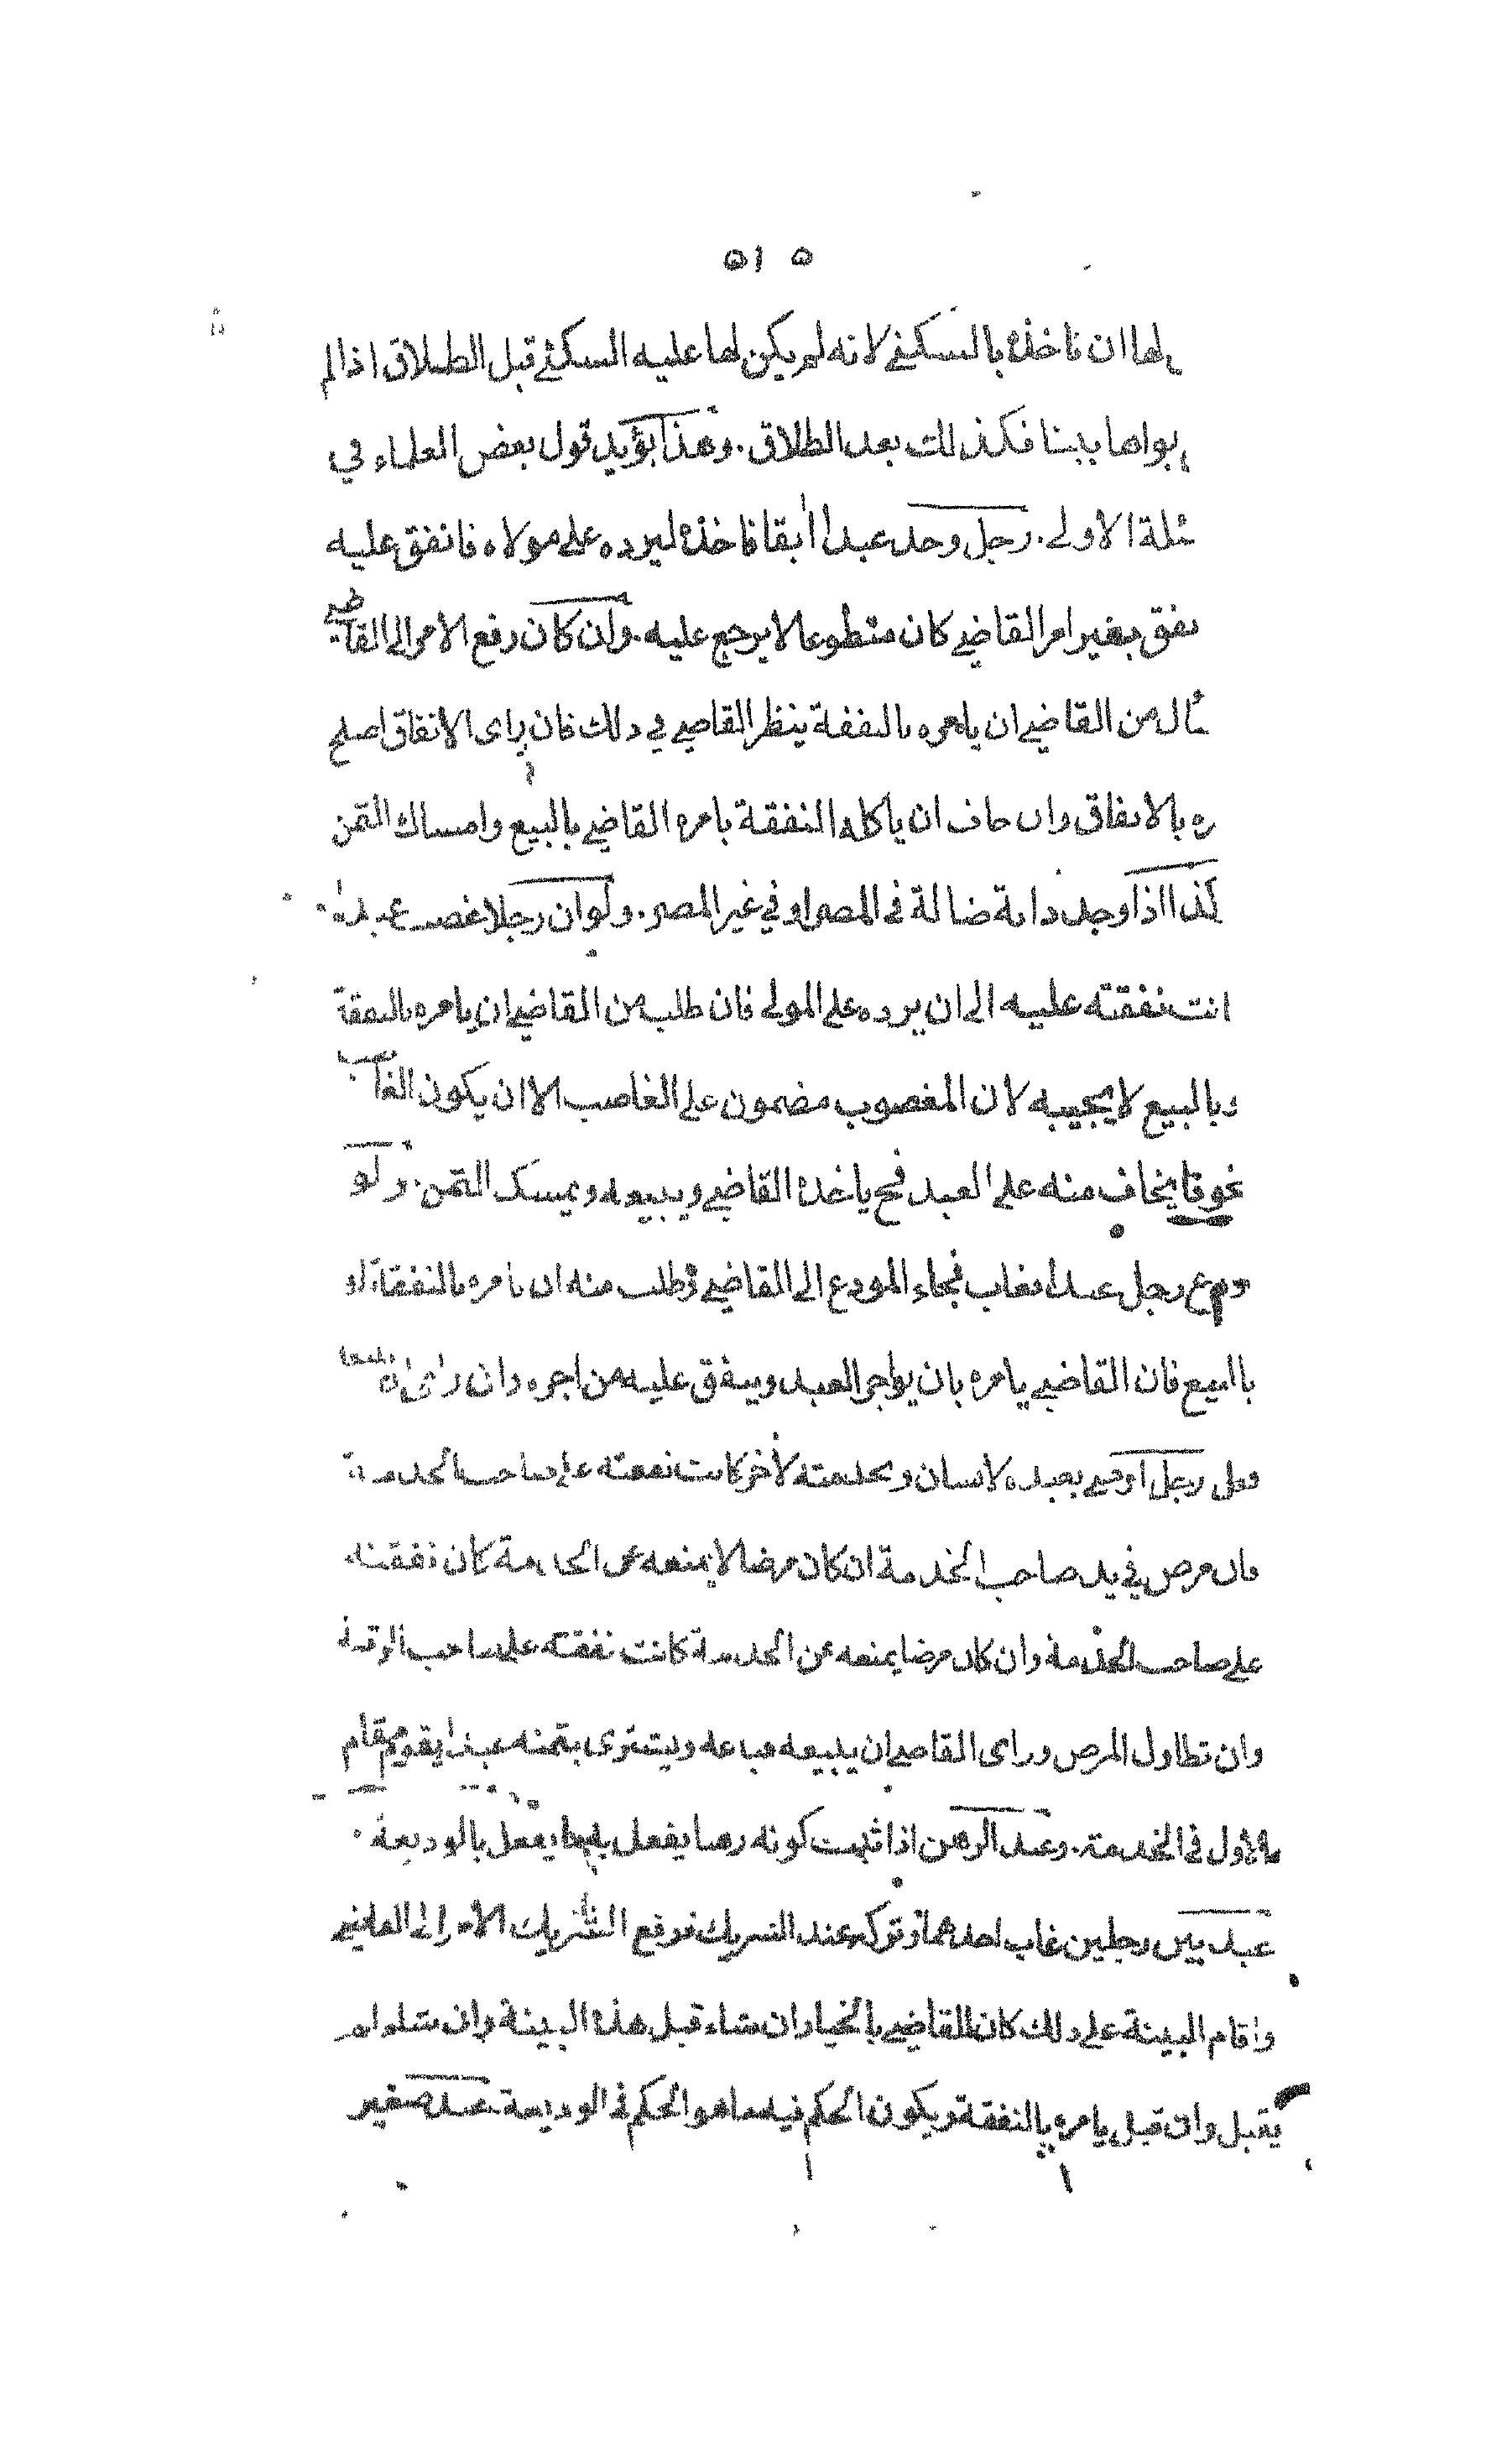 ٥١٥
لها ان تاخذه بالسكنى لانه لم يكن لها عليه السكنى قبل الطلاق اذا لم
يبواها بيتنا فكذلك بعد الطلاق. وهذا يؤيد قول بعض العلماء في
ئلة الاولى. رجل وجد عبدا ابقا فاخذه ليرده على مولاه فانفق عليه
نفق بغير امر القاضي كان متطوعا لا يرجع عليه. وان كان رفع الامر الى القاضي
سأل من القاضي ان يامره بالنفقة ينظر القاضي في ذلك فان راى الانفاق اصلح
ره بالانفاق وان خاف ان ياكله النفقة يامره القاضي بالبيع وامساك الثمن
كذا اذا وجد دابة ضالة في المصر او في غير المصر. ولو ان رجلا غصب عبدا
انت نفقته عليه الى ان يرده على المولى فان طلب من القاضي ان يامره بالنفقة
وبالبيع لا يجيبه لان المغصوب مضمون على الغاصب الا ان يكون الغاصب
مخوفا يخاف منه على العبد فح ياخذه القاضي ويبيعه ويمسك الثمن. ولو
ودع رجل عبدا فغاب فجاء المودع الى القاضي وطلب منه ان يامره بالنفقة او
بالبيع فان القاضي يامره بان يواجر العبد وينفق عليه من اجره وان راى
رجل اوصى بعبده لانسان وبخدمته لاخر كانت نفقته على صاحب الخدمة
فان مرض في يد صاحب الخدمة ان كان مرضا لا يمنعه عن الخدمة كان نفقته
على صاحب الخدمة وان كان مرضا يمنعه عن الخدمة كانت نفقته على صاحب الرقبة
وان تطاول المرض وراى القاضي ان يبيعه فباعه ويشترى بثمنه عبدا يقوم مقام
الاول في الخدمة. وعبد الرهن اذا ثبت كونه رهنا يفعل به ما يفعل بالوديعة
عبد بين رجلين غاب احدهما وتركه عند الشريك فرفع الشريك الامر الى القاضي
واقام البينة على ذلك كان للقاضي بالخيار ان شاء قبل هذه البينة وان شاء لم
يقبل وان قبل يامره بالنفقة ويكون الحكم فيه ما هو الحكم في الوديعة عبد صغير